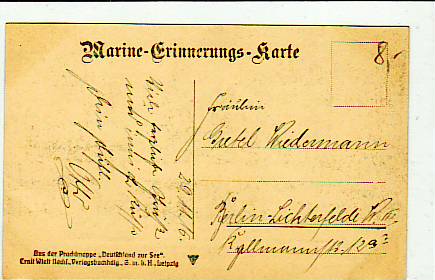 Marine-Erinnerungs-Karte
8.-
Viele herzliche Grüße
und
dein
Otto
29.11.16.
Fräulein
Gretel Wiedermann
Berlin-Lichterfelde W.
Kyllmannstr. 13a
Aus der Prachtmappe „Deutschland zur See".
Ernst Wiest Nachf., Verlagsbuchhdlg., G. m. b. H., Leipzig